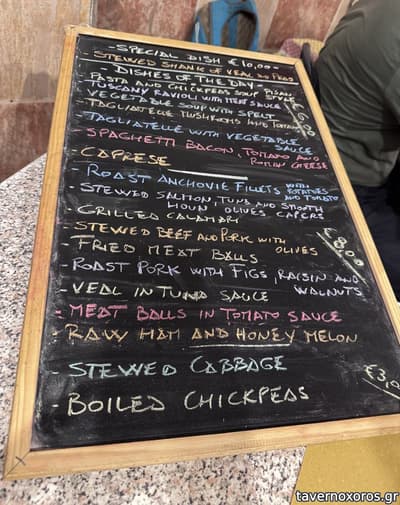 -SPECIAL DISH €10,00-
-STEWED SHANK OF VEAL AND PEAS
-DISHES OF THE DAY-
PASTA AND CHICKPEAS SOUP PISAN STYLE
TUSCANY RAVIOLI WITH MEAT SAUCE
VEGETABLE SOUP WITH SPELT
-TAGLIATELLE MUSHROOMS AND TOMATO
TAGLIATELLE WITH VEGETABLE SAUCE
-SPAGHETTI BACON, TOMATO AND ROMAN CHEESE
-CAPRESE
-ROAST ANCHOVIE FILLETS WITH POTATOES AND TOMATO
-STEWED SALMON, TUNA AND SMOOTH HOUN OLIVES CAPERS
-GRILLED CALAMARI
-STEWED BEEF AND PORK WITH OLIVES
-FRIED MEAT BALLS
-ROAST PORK WITH FIGS, RAISIN AND WALNUTS
-VEAL IN TUNA SAUCE
-MEAT BALLS IN TOMATO SAUCE
-RAW HAM AND HONEY MELON
-STEWED CABBAGE
-BOILED CHICKPEAS
tavernoxoros.gr